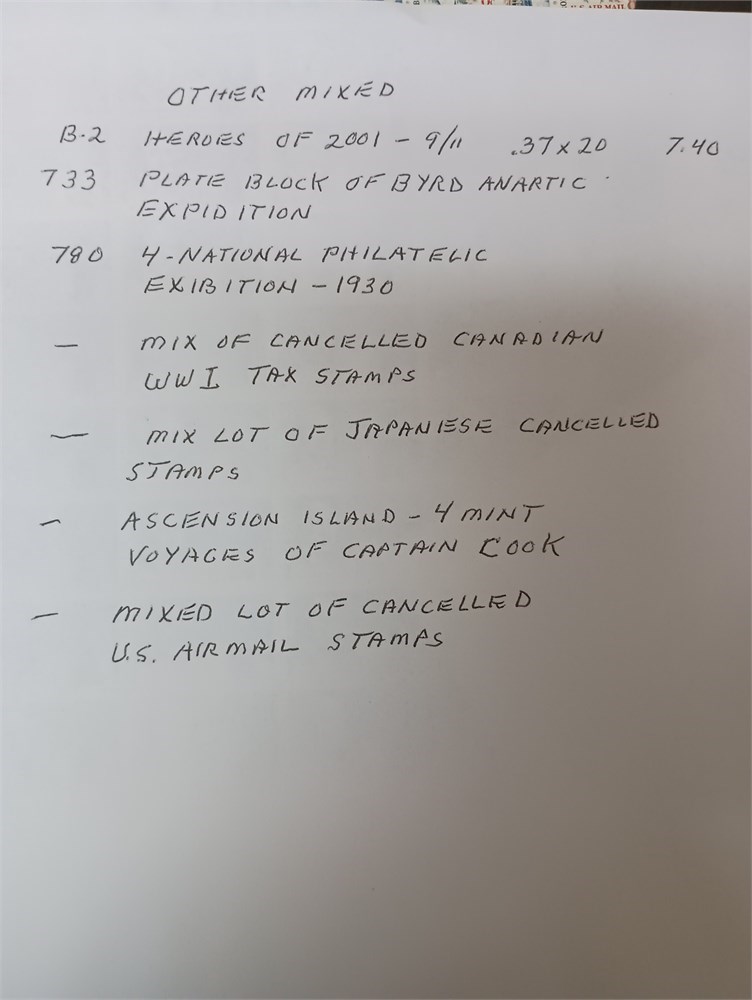 U.S. AIR MAIL
OTHER MIXED
B-2 HEROES OF 2001 - 9/11 .37 x 20 7.40
733 PLATE BLOCK OF BYRD ANARTIC
EXPIDITION
780 4 - NATIONAL PHILATELIC
EXIBITION - 1930
— MIX OF CANCELLED CANADIAN
WWI TAX STAMPS
— MIX LOT OF JAPANIESE CANCELLED
STAMPS
— ASCENSION ISLAND - 4 MINT
VOYAGES OF CAPTAIN COOK
— MIXED LOT OF CANCELLED
U.S. AIRMAIL STAMPS